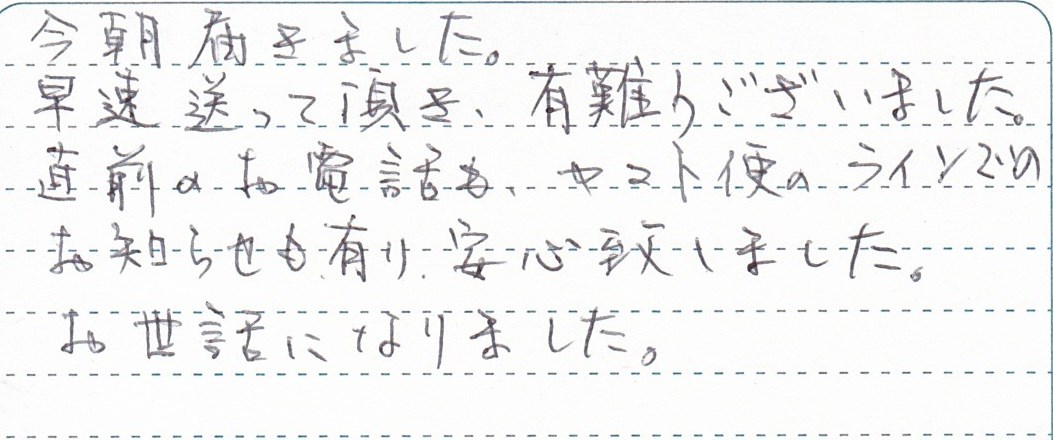 今朝届きました。
早速送って頂き、有難うございました。
直前のお電話も、ヤマト便のラインでの
お知らせも有り、安心致しました。
お世話になりました。